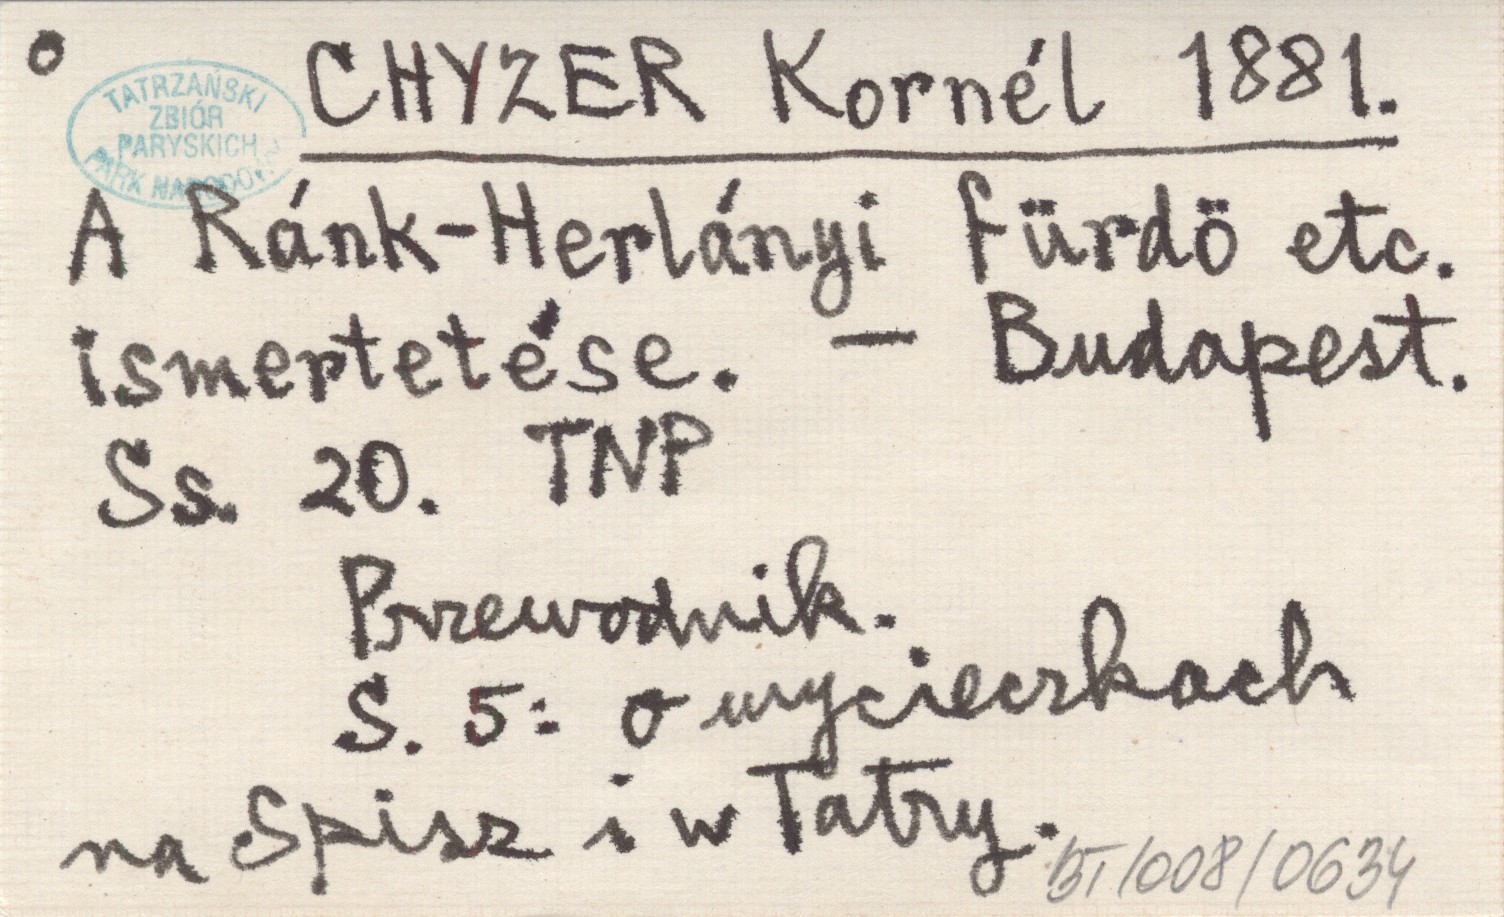 o CHYZER Kornél 1881.
TATRZAŃSKI
ZBIÓR
PARYSKICH
PARK NARODOWY
A Ránk-Herlányi fürdö etc.
ismertetése. — Budapest.
Ss. 20. TNP
Przewodnik.
S. 5: o wycieczkach
na Spisz i w Tatry.
BT/008/0634